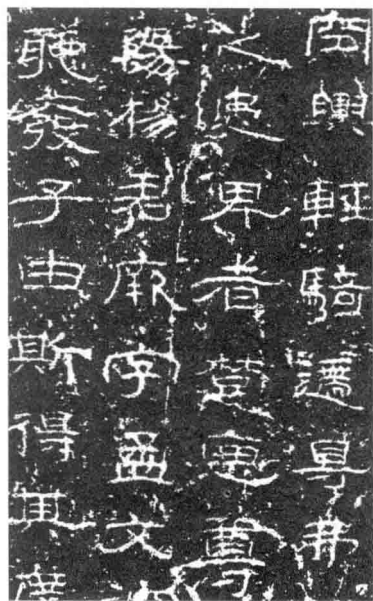 空輿輕騎遰㝵弗
之患卑者楚惡尊
陽楊君厥字孟文
聽廢子由斯得其度